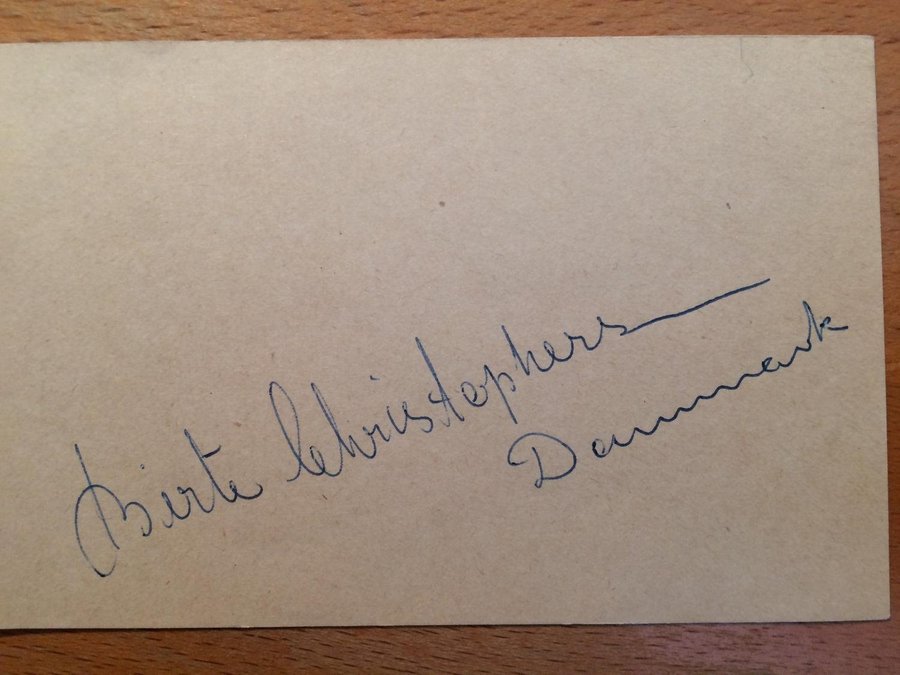 Birte Christophersen
Danmark